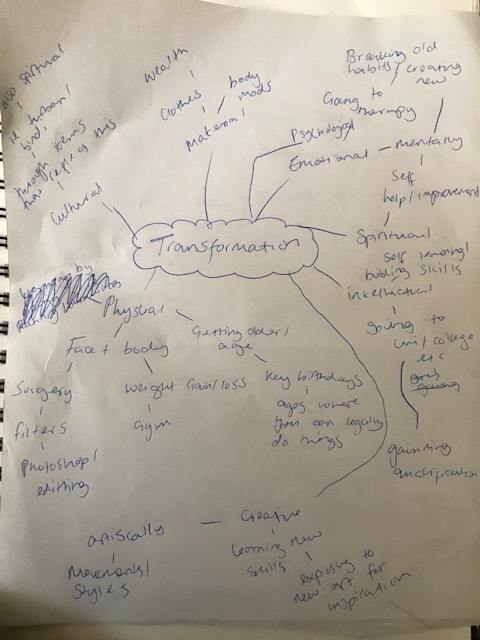 also spiritual
ie turban/
bindi
through items
that reflect this
Cultural
wealth
clothes
body
mods
Material
Breaking old
habits/ creating
new
Going to
therapy
Psychological
Emotional – mentally
self
help/improvement
Transformation
Spiritual
self learning/
building skills
intellectual
going to
uni/college
etc
gaining
qualification
Physical
Face + body
Surgery
filters
Photoshop/
edithing
weight Gain/loss
Gym
Getting older/
age
key birthdays
ages where
you can legally
do things
Creative
artiscally
Movements/
styles
learning new
skills
exposing to
new art for
inspiration